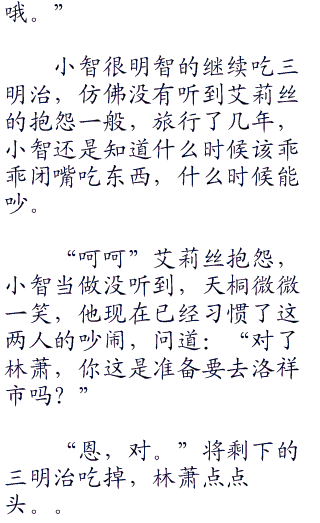 哦。”
小智很明智的继续吃三
明治，仿佛没有听到艾莉丝
的抱怨一般，旅行了几年，
小智还是知道什么时候该乖
乖闭嘴吃东西，什么时候能
吵。
“呵呵”艾莉丝抱怨，
小智当做没听到，天桐微微
一笑，他现在已经习惯了这
两人的吵闹，问道：“对了
林萧，你这是准备要去洛祥
市吗？”
“恩，对。”将剩下的
三明治吃掉，林萧点点
头。。